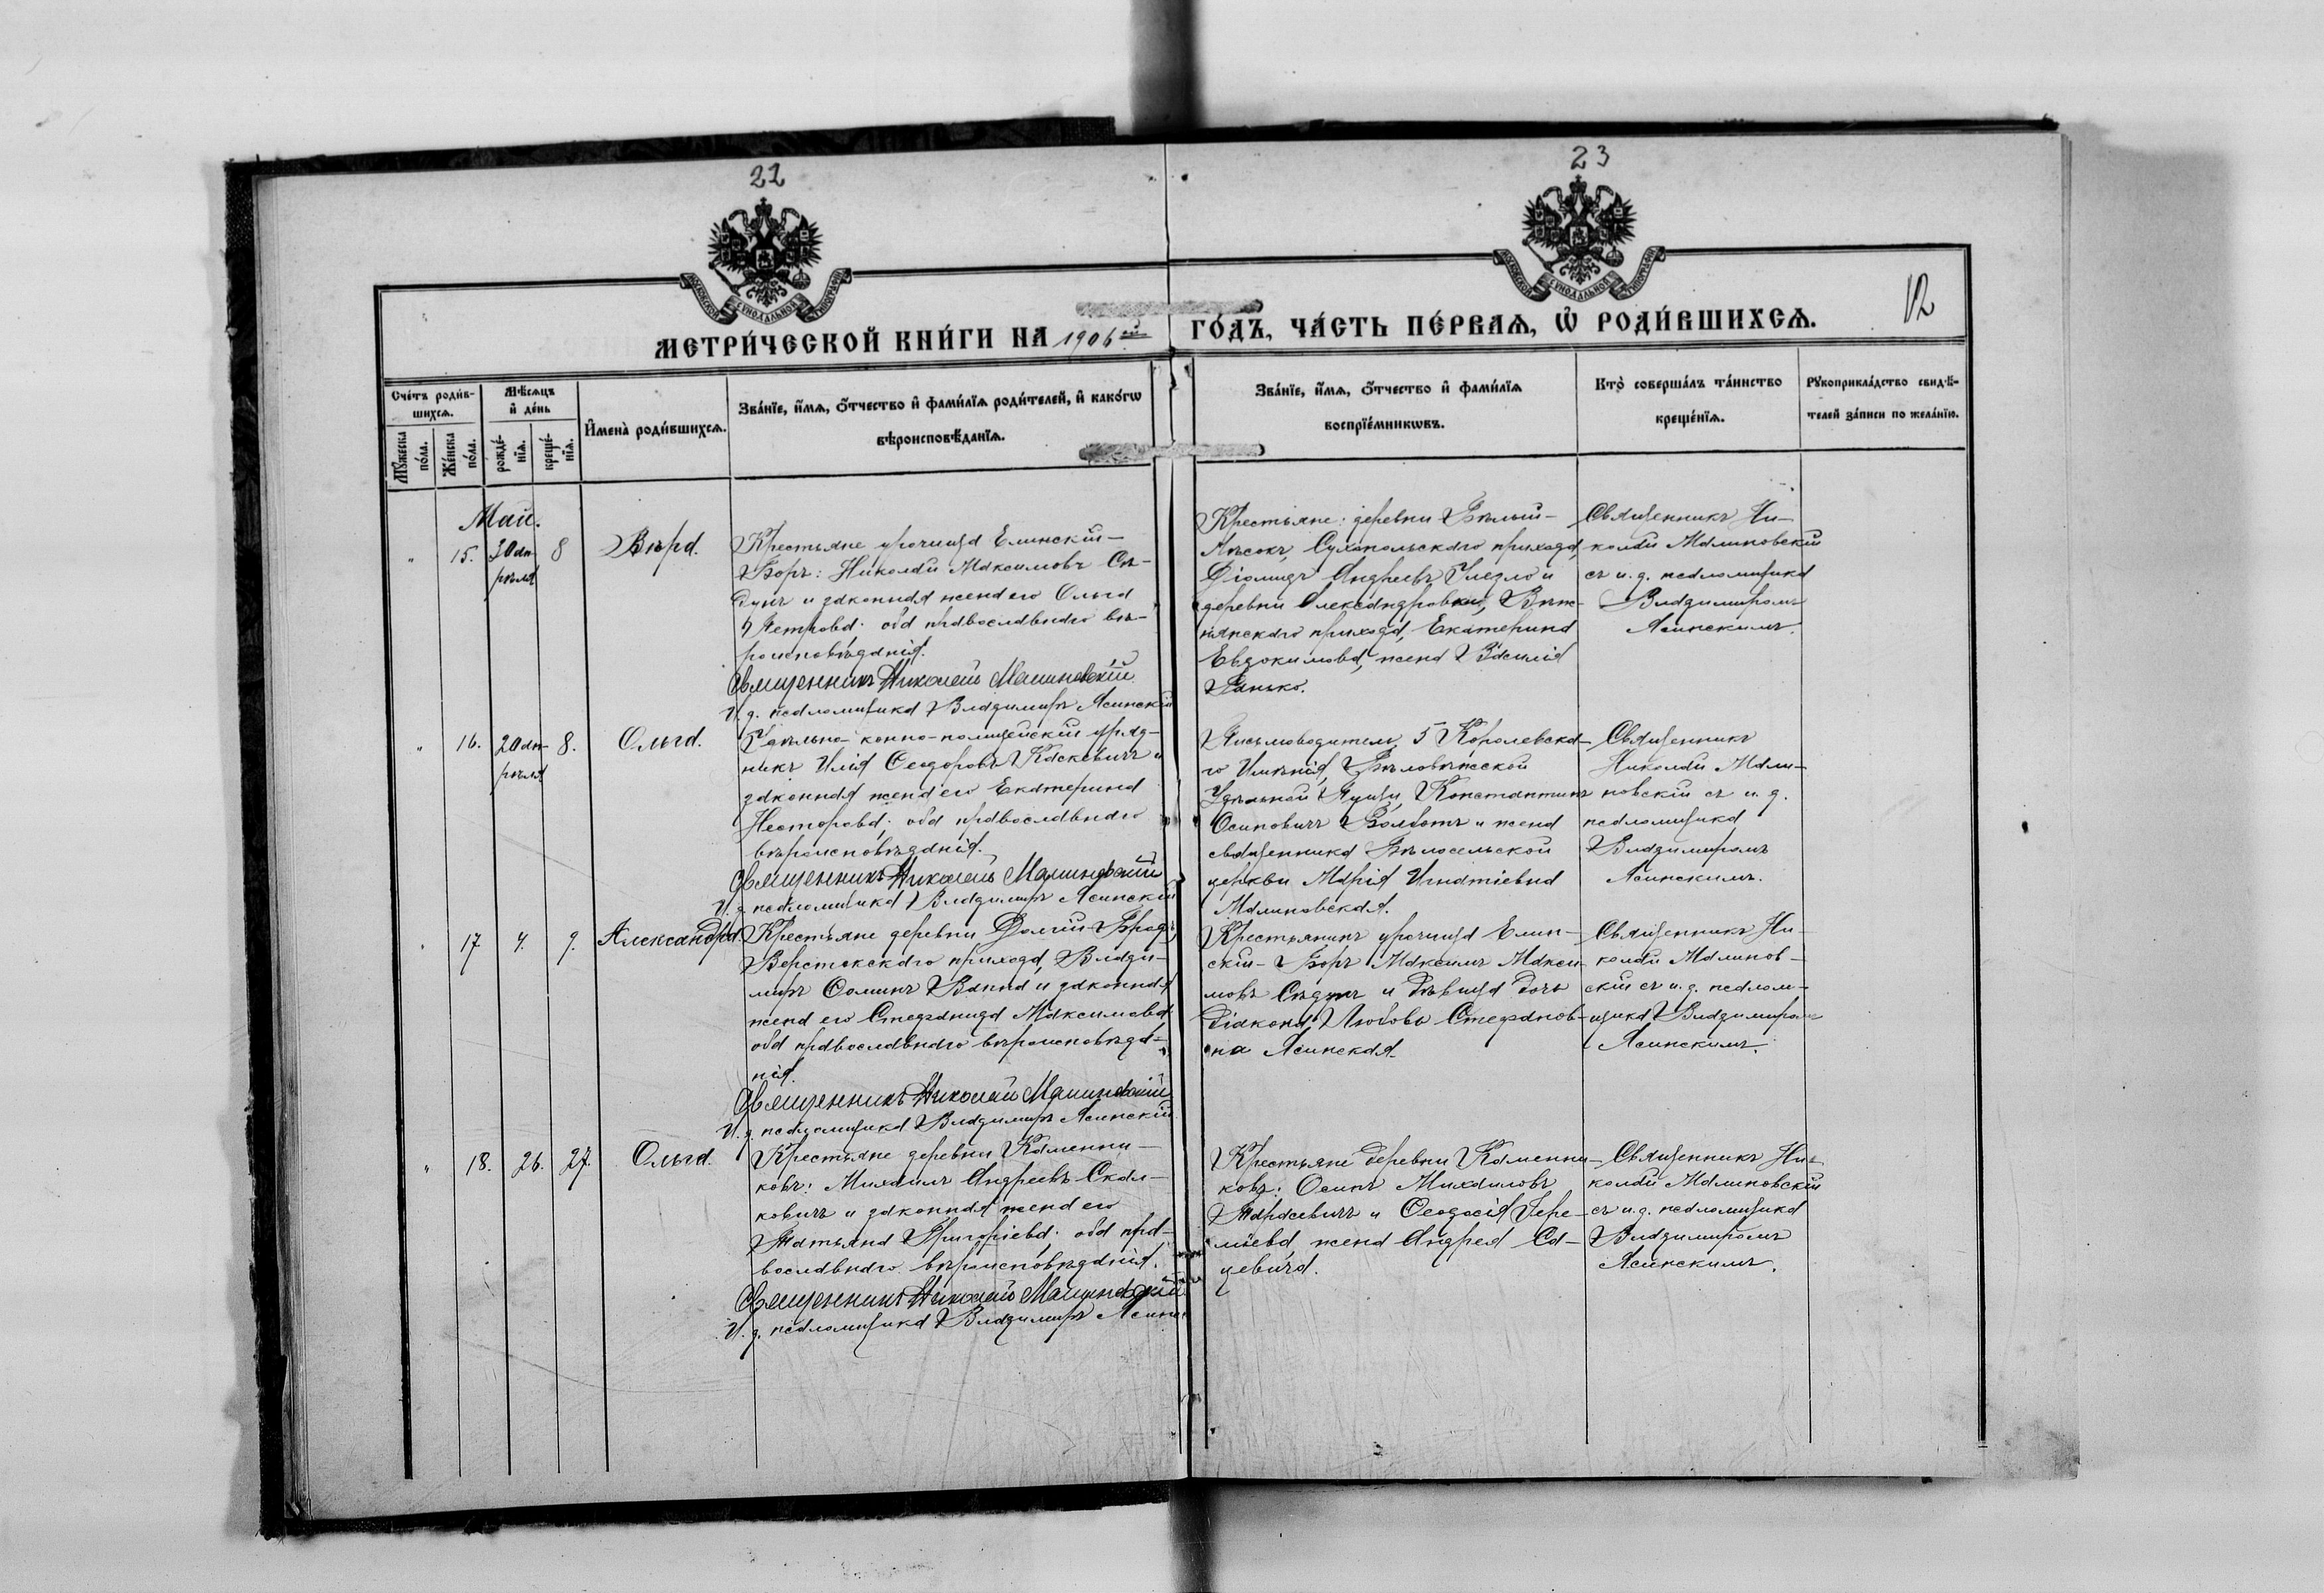 22
23
12
МОСКОВСКОЙ СѴНОДАЛЬНОЙ ТИПОГРАФІИ
МОСКОВСКОЙ СѴНОДАЛЬНОЙ ТИПОГРАФІИ
МЕТРИ́ЧЕСКОЙ КНИ́ГИ НА 1906 ой
ГО́ДЪ, ЧА́СТЬ ПЕ́РВАѦ, Ѡ҆ РОДИ́ВШИХСѦ.
Сче́тъ роди́в-
шихсѧ.
Мꙋ́жеска
по́ла.
Же́нска
по́ла.
Мѣ́сѧцъ
и҆ де́нь
рожде́-
нїѧ.
креще́-
нїѧ.
И҆мена̀ роди́вшихсѧ.
Зва́нїе, и҆́мѧ, ѻ҆́тчество и҆ фами́лїѧ роди́телей, и҆ како́гѡ
вѣроисповѣ́данїѧ.
Зва́нїе, и҆́мѧ, ѻ҆́тчество и҆ фами́лїѧ
воспрїе́мникѡвъ.
Кто̀ соверша́лъ та́инство
креще́нїѧ.
Рꙋкоприкла́дство свидѣ́-
телей за́писи по жела́нїю.
Май.
" 15. 30 ап-
рѣля
8
Вѣра.
Крестьяне урочища Елинскій-
Боръ: Николай Максимовъ Сѣ-
дунъ и законная жена его Ольга
Петрова; оба православнаго вѣ-
роисповѣданія.
Священникъ Николай Малиновскій
И. д. псаломщика Владимиръ Ясинскій
Крестьяне: деревни Бѣлый-
Лѣсокъ, Сухопольскаго прихода,
Діомидъ Андреевъ и
деревни Александровки,
прихода, Екатерина
Евдокимова, жена Василія
Панько.
Священникъ Ни-
колай Малиновскій
съ и. д. псаломщика
Владимиромъ
Ясинскимъ.
" 16. 20 ап-
рѣля
8.
Ольга.
Удѣльно-конно-полицейскій уряд-
никъ Илія Ѳеодоровъ Каскевичъ и
законная жена его Екатерина
Несторова; оба православнаго
вѣроисповѣданія.
Священникъ Николай Малиновскій
И. д. псаломщика Владимиръ Ясинскій
Письмоводитель, 5 Королевска-
го Имѣнія, Бѣловѣжской
Удѣльной Пущи, Константинъ
Осиповичъ и жена
священника Бѣлосельской
церкви Марія Игнатіевна
Малиновская.
Священникъ
Николай Мали-
новскій съ и. д.
псаломщика
Владимиромъ
Ясинскимъ.
" 17 4. 9. Александра.
Крестьяне деревни Долгій-Бродъ,
Верстокскаго прихода, Влади-
миръ Ѳоминъ Ванна и законная
жена его Стефанида Максимова;
оба православнаго вѣроисповѣда-
нія.
Священникъ Николай Малиновскій
И. д. псаломщика Владимиръ Ясинскій
Крестьянинъ урочища Елин-
скій-Боръ Максимъ Макси-
мовъ Сѣдунъ и дѣвица дочь
діакона Любовь Стефанов-
на Ясинская.
Священникъ Ни-
колай Малинов-
скій съ и. д. псалом-
щика Владимиромъ
Ясинскимъ.
" 18. 26. 27. Ольга.
Крестьяне деревни Каменни-
ковъ: Михаилъ Андреевъ Скал-
ковичъ и законная жена его
Татьяна Григоріева; оба пра-
вославнаго вѣроисповѣданія.
Священникъ Николай Малиновскій
И. д. псаломщика Владимиръ Ясинск
Крестьяне деревни Каменни-
ковъ: Осипъ Михаиловъ
Тарасевичъ и Ѳеодосія Іере-
міева, жена Андрея Са-
цевича.
Священникъ Ни-
колай Малиновскій
съ и. д. псаломщика
Владимиромъ
Ясинскимъ.